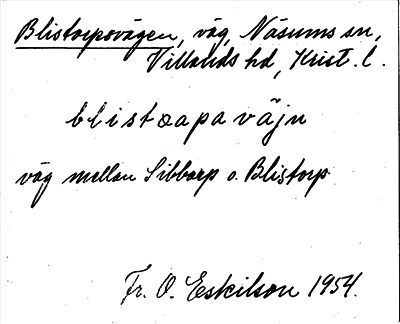 Blistorpsvägen, väg, Näsums sn,
Villands hd, Krist. l.
blistɔapa väjn
väg mellan Sibbarp o. Blistorp
Fr. O. Eskilson 1954.